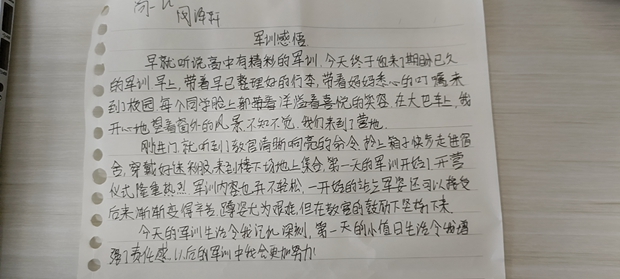 高一
周泽轩
军训感悟
早就听说高中有精彩的军训,今天终于迎来了期盼已久
的军训.早上,带着早已整理好的行李,带着妈妈悉心的叮嘱来
到了校园.每个同学脸上都带着洋溢着喜悦的笑容.在大巴车上,我
开心地望着窗外的风景不知不觉,我们来到了营地.
刚进门,就听到了教官清晰响亮的命令,拎上箱子快步走进宿
舍,穿戴好迷彩服来到楼下场地上集合.第一天的军训开始了,开营
仪式隆重热烈.军训内容也并不轻松,一开始的站立军姿还可以接受
后来渐渐变得辛苦,蹲姿尤为艰难,但在教官的鼓励下坚持下来.
今天的军训生活令我记忆深刻,第一天的小值日生活令我增
强了责任感.以后的军训中我会更加努力